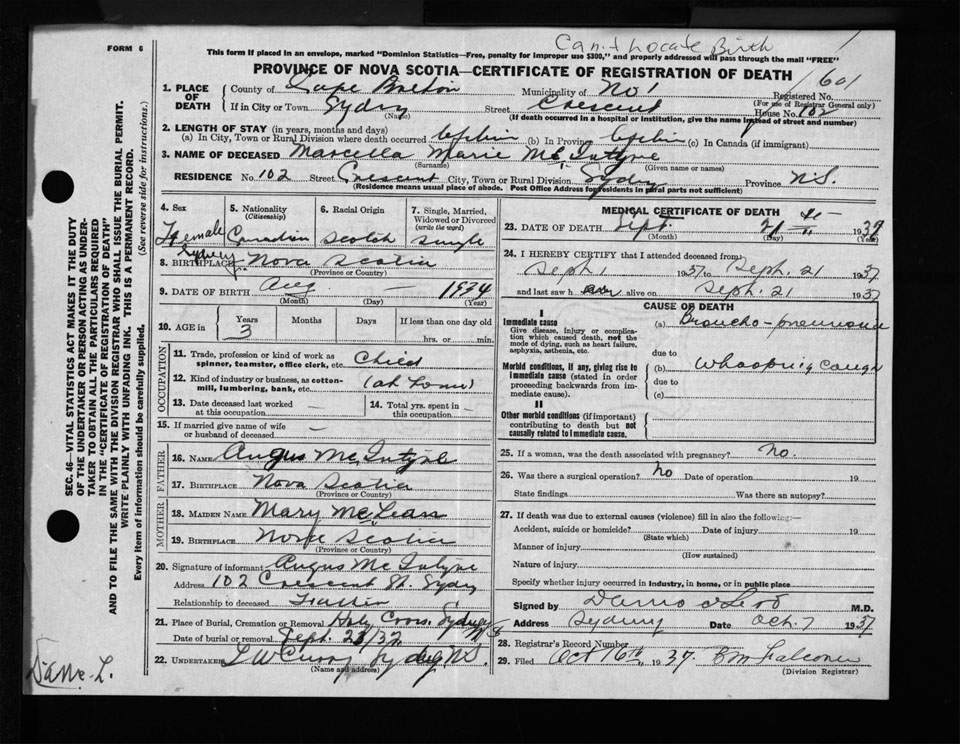 Can't Locate Birth
FORM 6
This form if placed in an envelope, marked "Dominion Statistics—Free, penalty for improper use $300," and properly addressed will pass through the mail "FREE"
PROVINCE OF NOVA SCOTIA—CERTIFICATE OF REGISTRATION OF DEATH
1601
1. PLACE OF DEATH
County of Cape Breton Municipality of No 1 Registered No.
(For use of Registrar General only)
If in City or Town Sydney Street Crescent House No. 102
(Name) (If death occurred in a hospital or institution, give the name instead of street and number)
2. LENGTH OF STAY (in years, months and days)
(a) In City, Town or Rural Division where death occurred (b) In Province (c) In Canada (if immigrant)
3. NAME OF DECEASED Marcella Marie McIntyre
(Surname) (Given name or names)
RESIDENCE No. 102 Street Crescent City, Town or Rural Division Sydney Province N.S.
(Residence means usual place of abode. Post Office Address for residents in rural parts not sufficient)
4. Sex Female
5. Nationality (Citizenship) Canadian
6. Racial Origin Scotch
7. Single, Married, Widowed or Divorced (write the word) Single
8. BIRTHPLACE Sydney Nova Scotia
(Province or Country)
9. DATE OF BIRTH Aug — 1934
(Month) (Day) (Year)
10. AGE in Years Months Days If less than one day old
3 hrs. or min.
OCCUPATION
11. Trade, profession or kind of work as spinner, teamster, office clerk, etc. Child
12. Kind of industry or business, as cotton-mill, lumbering, bank, etc. (at home)
13. Date deceased last worked at this occupation —
14. Total yrs. spent in this occupation —
15. If married give name of wife or husband of deceased —
FATHER
16. NAME Angus McIntyre
17. BIRTHPLACE Nova Scotia
(Province or Country)
MOTHER
18. MAIDEN NAME Mary McLean
19. BIRTHPLACE Nova Scotia
(Province or Country)
20. Signature of informant Angus McIntyre
Address 102 Crescent St. Sydney
Relationship to deceased Father
21. Place of Burial, Cremation or Removal Holy Cross. Sydney N S
Date of burial or removal Sept. 23/37
22. UNDERTAKER L W Curry Sydney N.S.
(Name and address)
MEDICAL CERTIFICATE OF DEATH
23. DATE OF DEATH Sept. 21 1937
(Month) (Day) (Year)
24. I HEREBY CERTIFY that I attended deceased from:
Sept. 1 1937 to Sept. 21 1937
and last saw her alive on Sept. 21 1937
CAUSE OF DEATH
I
Immediate cause
Give disease, injury or complication which caused death, not the mode of dying, such as heart failure, asphyxia, asthenia, etc.
(a) Broncho-pneumonia
due to
Morbid conditions, if any, giving rise to immediate cause (stated in order proceeding backwards from immediate cause).
(b) Whooping Cough
due to
(c)
II
Other morbid conditions (if important) contributing to death but not causally related to immediate cause.
25. If a woman, was the death associated with pregnancy? No.
26. Was there a surgical operation? No Date of operation 19
State findings Was there an autopsy?
27. If death was due to external causes (violence) fill in also the following:—
Accident, suicide or homicide? Date of injury 19
(State which)
Manner of injury
(How sustained)
Nature of injury
Specify whether injury occurred in industry, in home, or in public place
Signed by M.D.
Address Sydney Date Oct. 7 1937
28. Registrar's Record Number
29. Filed Oct 16th, 1937. B M Falconer
(Division Registrar)
SEC. 46—VITAL STATISTICS ACT MAKES IT THE DUTY
OF THE UNDERTAKER OR PERSON ACTING AS UNDER-
TAKER TO OBTAIN ALL THE PARTICULARS REQUIRED
IN THE "CERTIFICATE OF REGISTRATION OF DEATH"
AND TO FILE THE SAME WITH THE DIVISION REGISTRAR WHO SHALL ISSUE THE BURIAL PERMIT.
WRITE PLAINLY WITH UNFADING INK. THIS IS A PERMANENT RECORD.
Every item of information should be carefully supplied.
(See reverse side for instructions.)